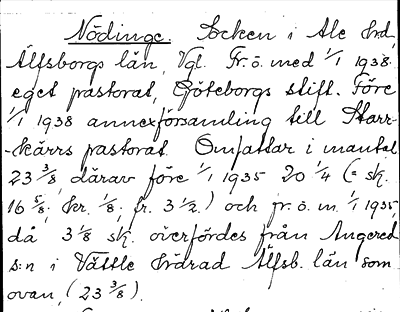 Nödinge. Socken i Ale hrd,
Älfsborgs län, Vgl. Fr.o.med 1/1 1938
eget pastorat, Göteborgs stift. Före
1/1 1938 annexförsamling till Starr-
-kärrs pastorat. Omfattar i mantal
23 3/8, därav före 1/1 1935 20 1/4 (= sk.
16 5/8, kr. 1/8, fr. 3 1/2.) och fr.o.m. 1/1 1935,
då 3 1/8 sk. överfördes från Angered
s:n i Vättle härad Älfsb. län som
ovan, (23 3/8).